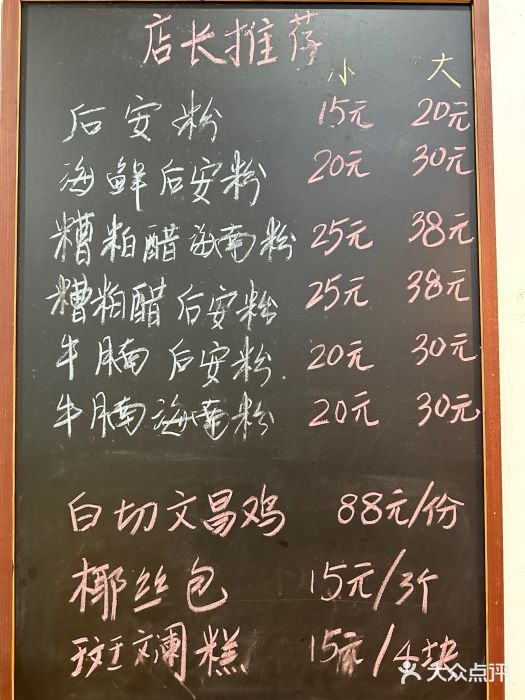 店长推荐
小 大
后安粉 15元 20元
海鲜后安粉 20元 30元
糟粕醋海南粉 25元 38元
糟粕醋后安粉 25元 38元
牛腩后安粉. 20元 30元
牛腩海南粉 20元 30元
白切文昌鸡 88元/份
椰丝包 15元/3个
斑斓糕 15元/4块
大众点评